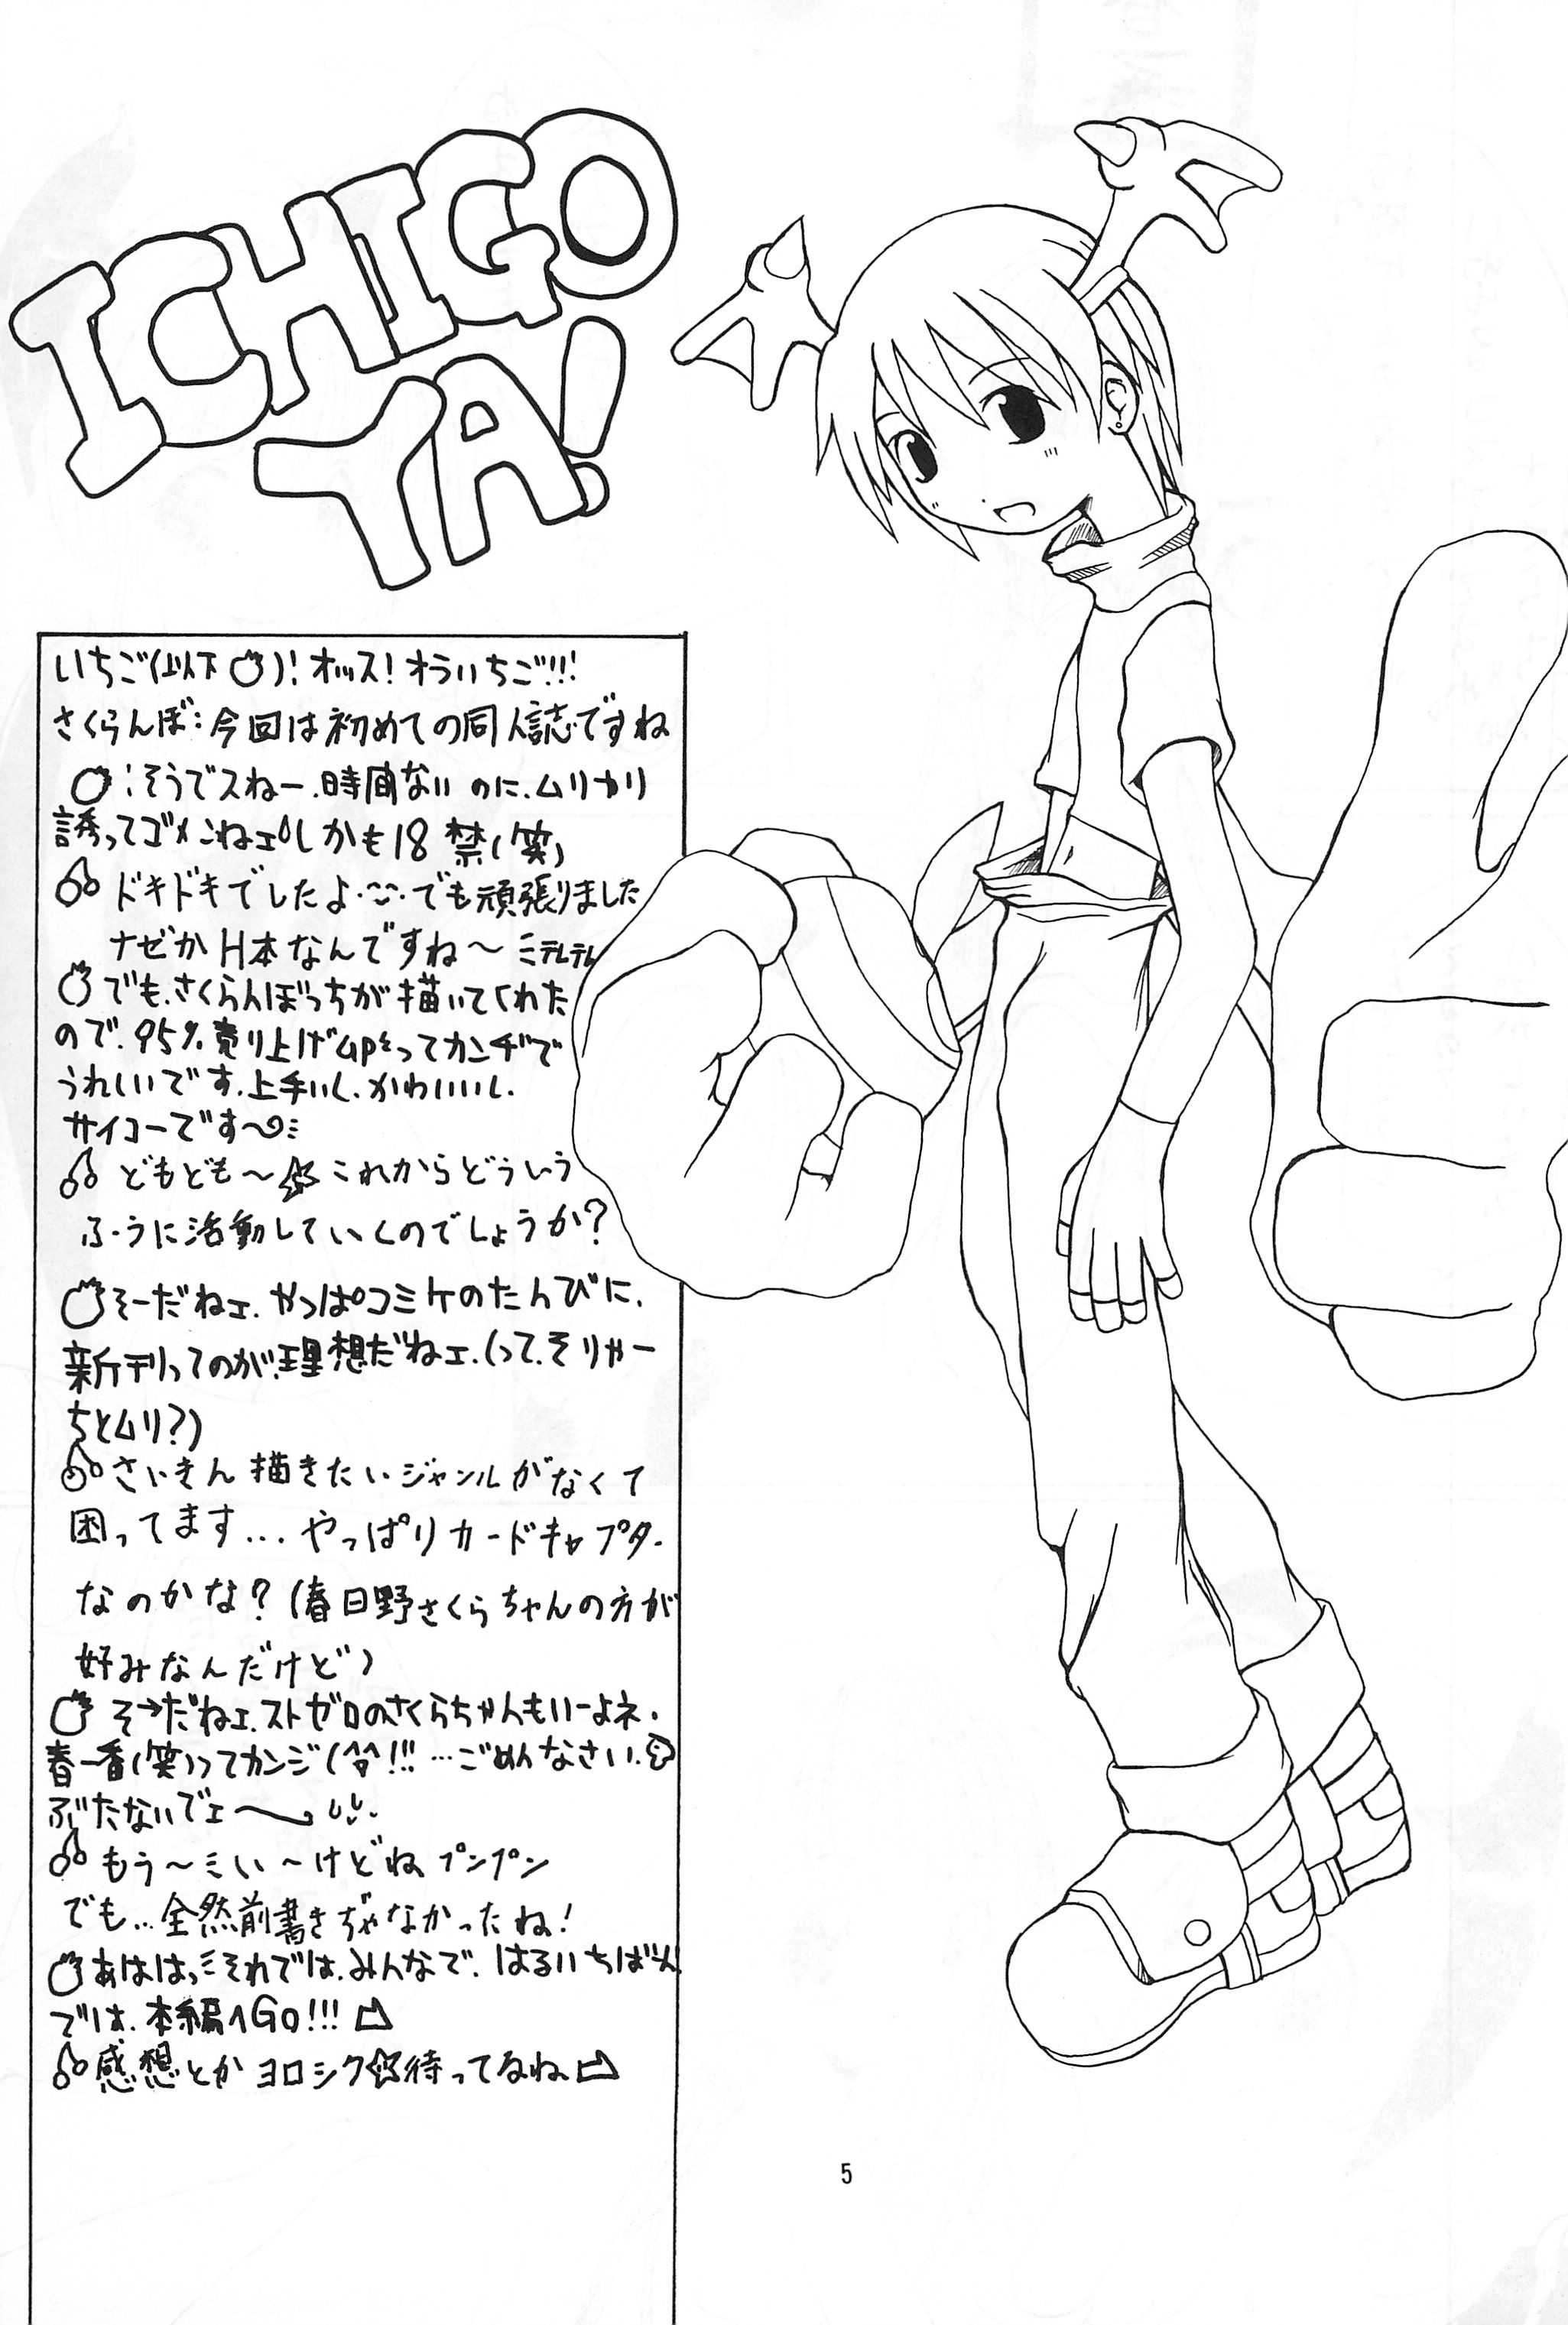 ICHIGO
YA!
いちご(以下🍓)!オッス!オラいちご!!!
さくらんぼ:今回は初めての同人誌ですね
🍓:そうでスねー.時間ないのに.ムリカリ
誘ってゴメンねェ しかも18禁(笑)
🍒ドキドキでしたよ…でも頑張りました
ナゼかH本なんですね〜
🍓でも.さくらんぼっちが描いてくれた
ので.95%売り上げupってカンヂで
うれしいです.上手いし.かわいいし.
サイコーです〜
🍒どもども〜☆これからどういう
ふうに活動していくのでしょうか?
🍓そーだねェ.やっぱコミケのたんびに.
新刊ってのが.理想だねェ.(って.そりゃー
ちとムリ?)
🍒さいきん描きたいジャンルがなくて
困ってます...やっぱりカードキャプター
なのかな?(春日野さくらちゃんの方が
好みなんだけど)
🍓そーだねェ.ストゼロのさくらちゃんもいーよネ.
春一番(笑)ってカンジ(^^!!!…ごめんなさい.
ぶたないでェ〜
🍒もう〜ミい〜けどね プンプン
でも...全然前書きぢゃなかったね!
🍓あははっそれでは.みんなで.はるいちばん
では.本編へGO!!!
🍒感想とかヨロシク☆待ってるね
5